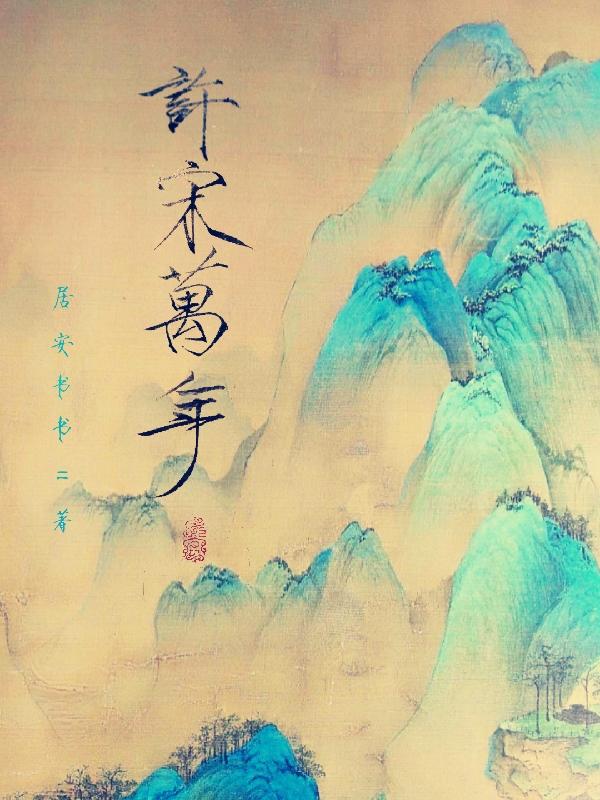 許宋萬年
居安书书二著